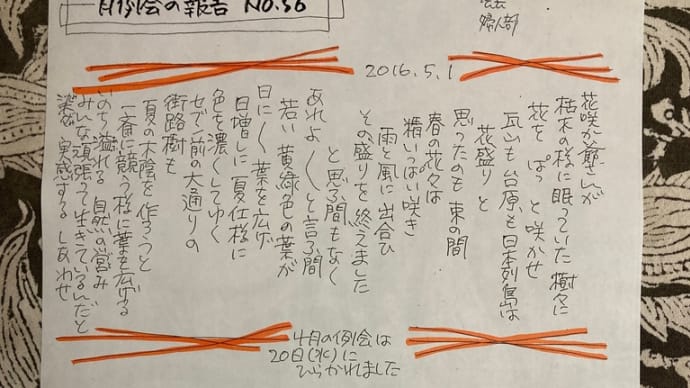 月例会の報告 NO.56
婦人部
2016.5.1
花咲か爺さんが
枯木の様に眠っていた 樹々に
花を ぱっ と咲かせ
瓦山も 台原も 日本列島は
花盛り と
思ったのも 束の間
春の花々は
精いっぱい咲き
雨と風に出合ひ
その盛りを 終えました
と思ふ間もなく
あれよ〱と言ふ間
若い 黄緑色の葉が
日に〱 葉を広げ
日増しに 夏仕様に
色を濃くしてゆく
セブン前の大通りの
街路樹も
夏の木陰を 作ろうと
一斉に競う様に葉を広げる
いのち溢れる 自然の営み
みんな頑張って生きているんだと
実感する しあわせ
4月の例会は
20日(水)に
ひらかれました